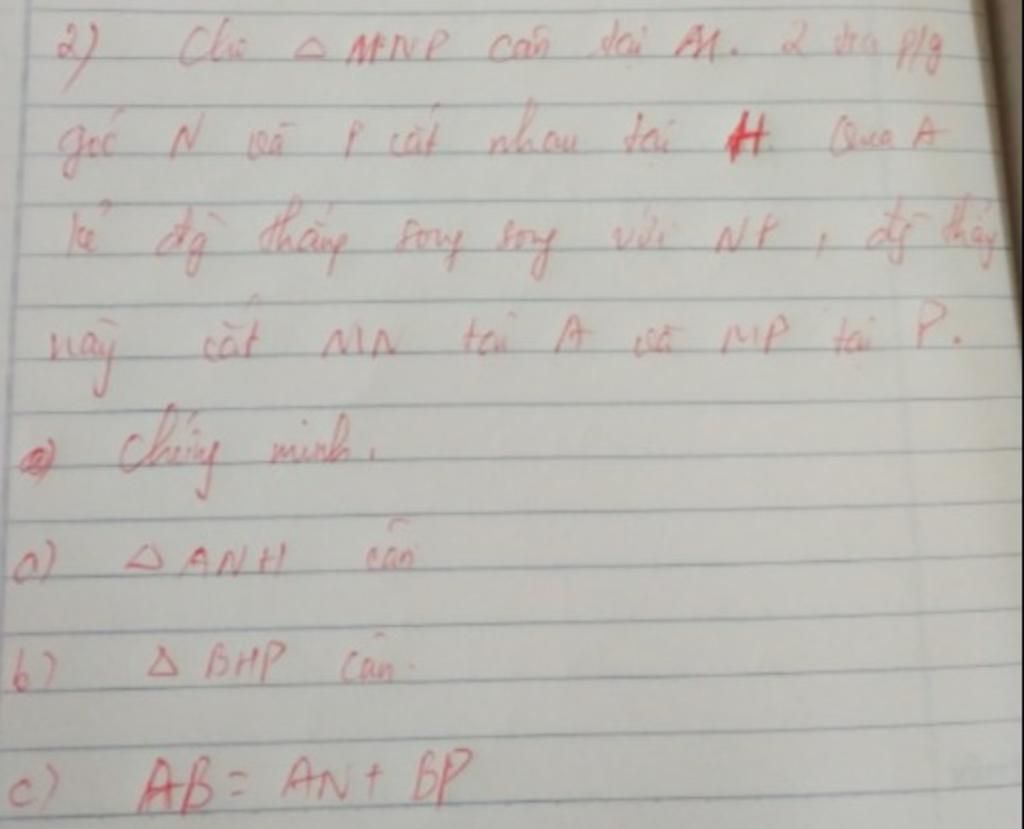 2) Cho △ MNP cân tại M. 2 tia p/g
góc N và P cắt nhau tại H. Qua A
kẻ đg̀ thẳng song song với NP, đg̀ thẳng
này cắt MN tại A và MP tại P.
a) Chứng minh.
a) △ ANH cân
b) △ BHP cân.
c) AB = AN + BP